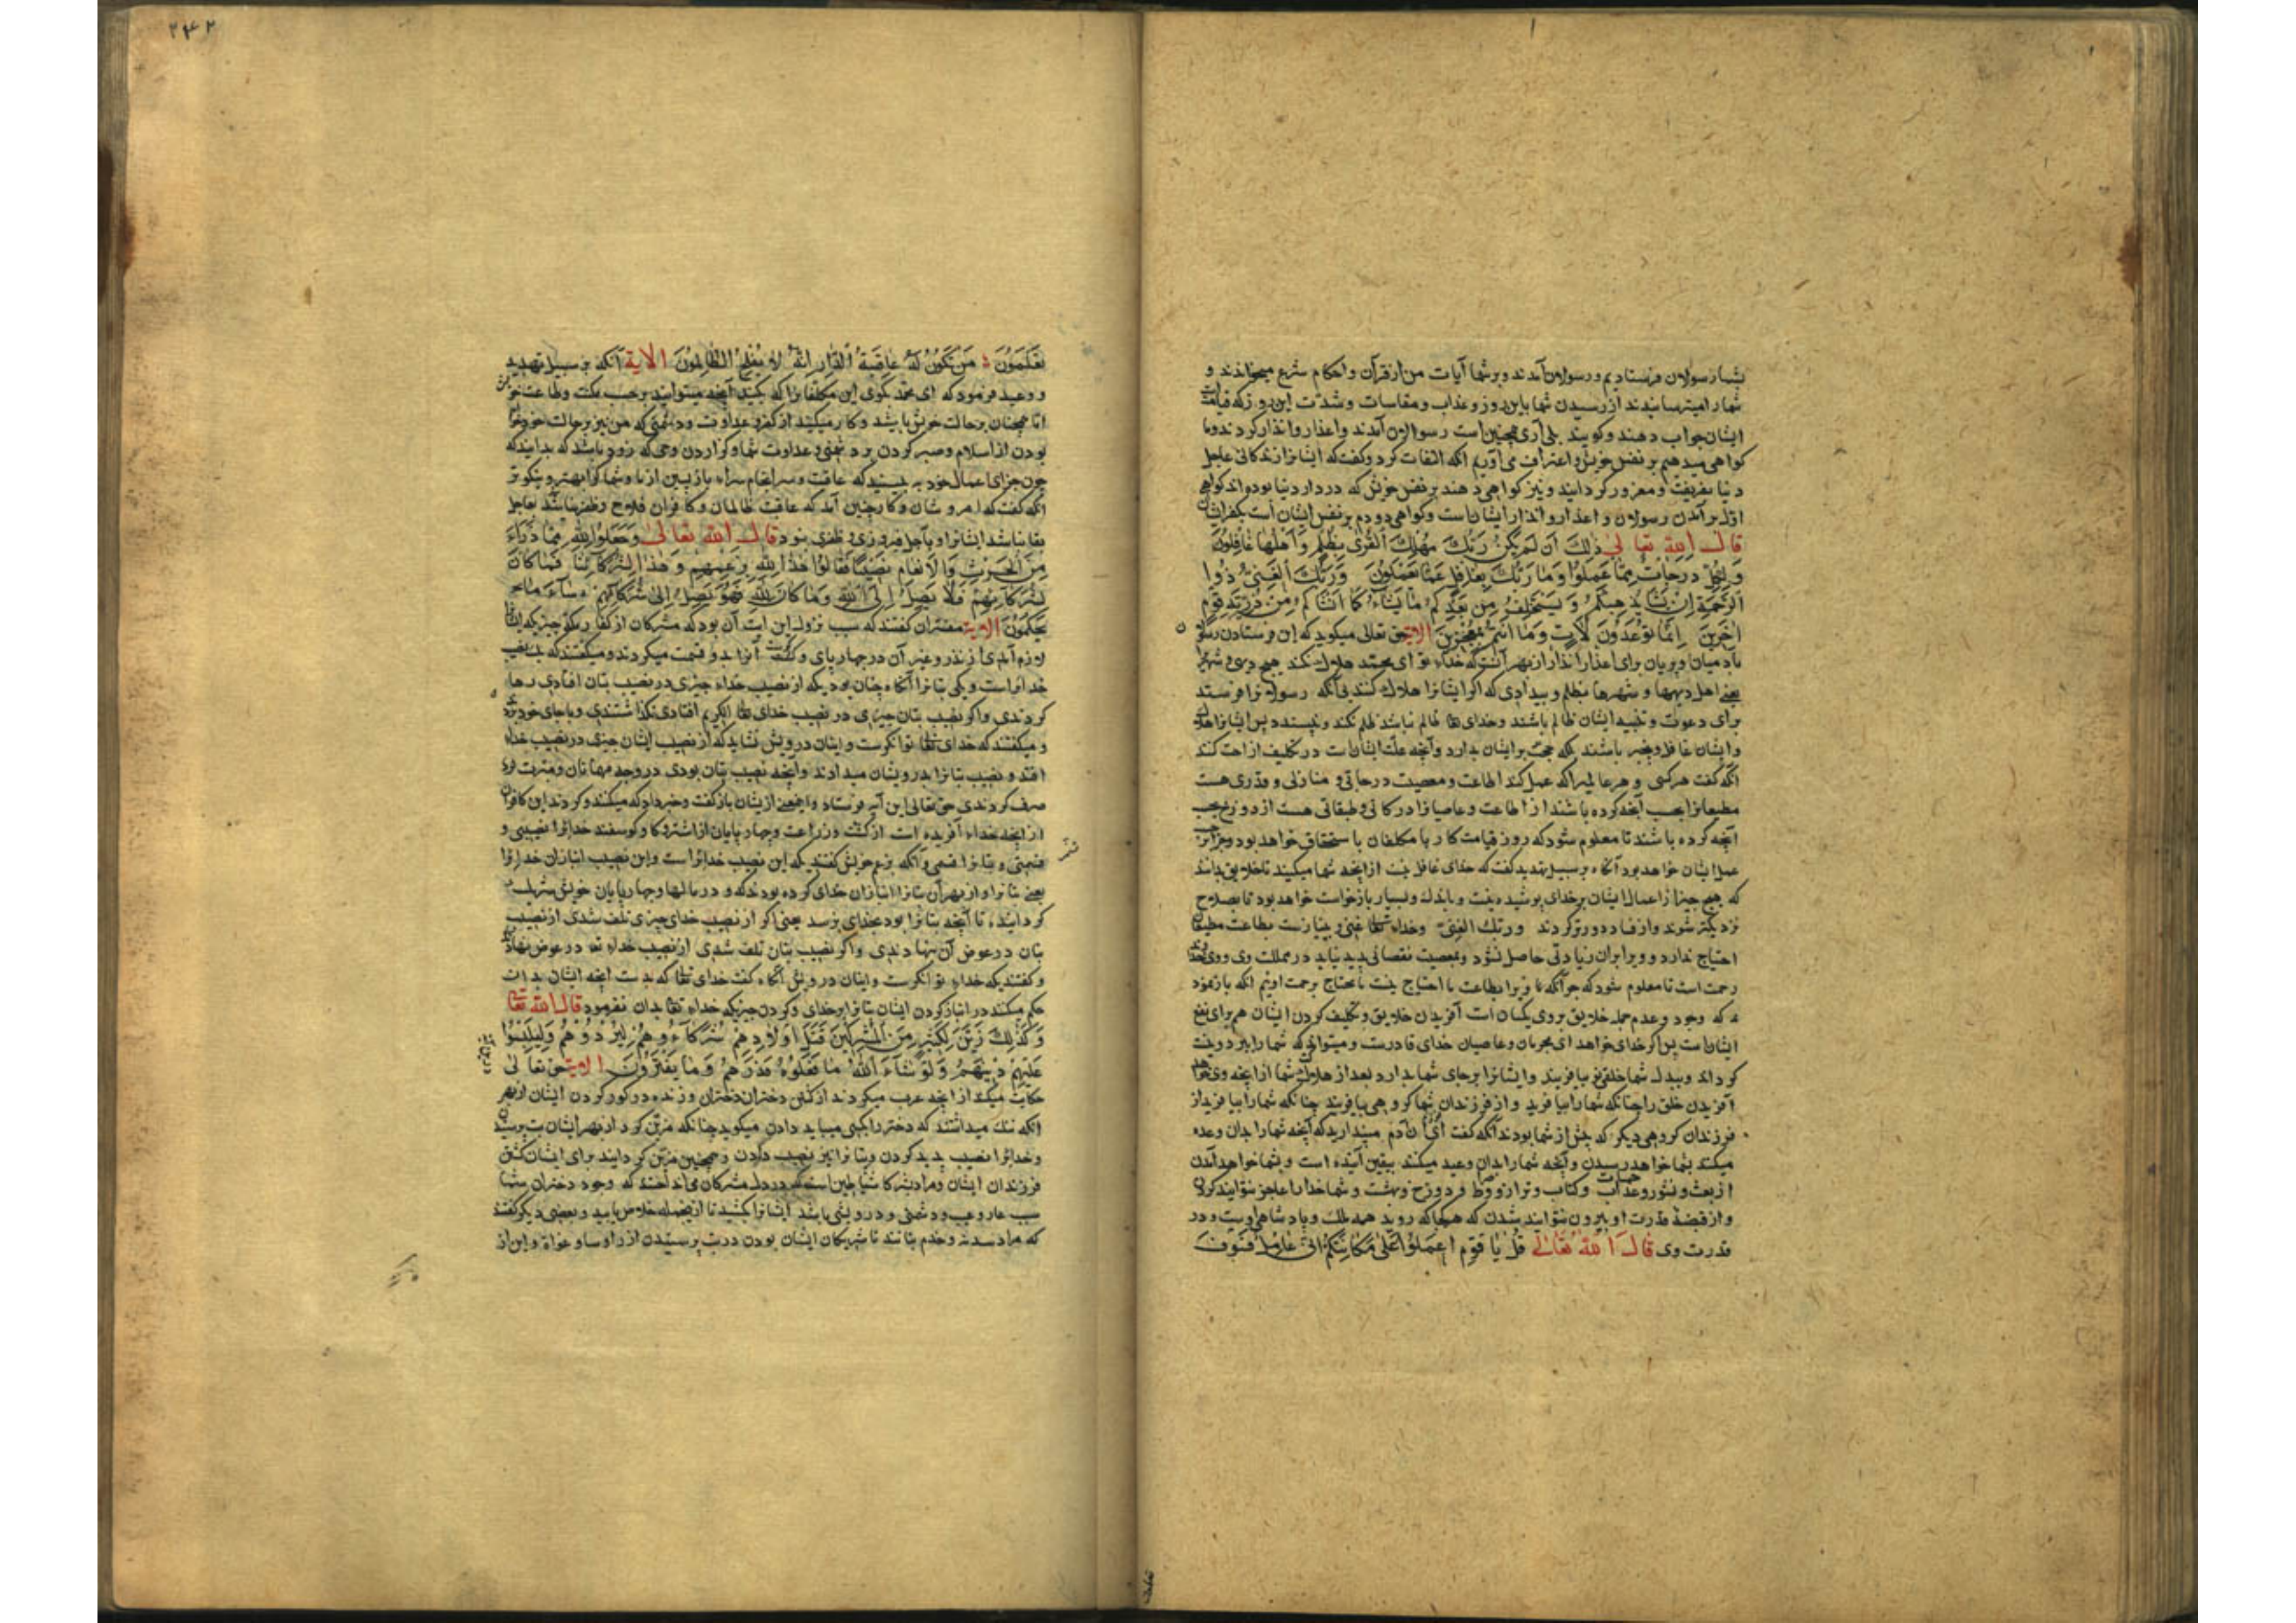 بشما رسولان فرستادیم و رسولان آمدند و بر شما آیات من از قرآن و احکام شرع میخواندند و
شما را میترسانیدند از رسیدن شما باین روز و عذاب و مقاسات و شدّت این روز که قیامت
ایشان جواب دهند و کویند بلی آری همچنین است رسولان آمدند و اعذار و انذار کردند و ما
کواهی میدهیم بر نفس خویش و اعتراف می آوریم انکه التفات کرد و کفت که ایشانرا زندکانی عاجل
دنیا بفریفت و مغرور کردانید و نیز کواهی دهند بر نفس خویش که در دار دنیا بوده اند کواهی
اوّل بر آمدن رسولان و اعذار و انذار ایشان است و کواهی دوم بر نفس ایشان است بکفر ایشان
قال الله تعالی ذلِكَ اَنْ لَمْ یَكُنْ رَبُّكَ مُهْلِكَ الْقُرٰی بِظُلْمٍ وَ اَهْلُهٰا غٰافِلُونَ
وَ لِكُلٍّ دَرَجٰاتٌ مِمّٰا عَمِلُوا وَ مٰا رَبُّكَ بِغٰافِلٍ عَمّٰا یَعْمَلُونَ وَ رَبُّكَ الْغَنِیُّ ذُوا
الرَّحْمَةِ اِنْ یَشَأْ یُذْهِبْكُمْ وَ یَسْتَخْلِفْ مِنْ بَعْدِكُمْ مٰا یَشٰاءُ كَمٰا اَنْشَأَكُمْ مِنْ ذُرِّیَّةِ قَوْمٍ
اٰخَرِینَ اِنَّمٰا تُوعَدُونَ لَاٰتٍ وَ مٰا اَنْتُمْ بِمُعْجِزِینَ الایة حق تعالی میکوید که این فرستادن رسولان
بآدمیان و پریان برای اعذار و انذار از بهر آنست که خداء تو ای محمد هلاك نکند هیچ دیهی و شهری
یعنی اهل دیهها و شهرها بظلم و بیدادی که اکر ایشانرا هلاك کنند بی آنکه رسولی فرستد
برای دعوت و تنبیه ایشان ظالم باشند و خدای تعا ظالم نباشد ظلم نکند و نپسندد پس ایشانرا هلاك
و ایشان غافل و بیخبر باشند بلکه حجت بر ایشان بدارد و آنچه علّت ایشانست در تکلیف ازاحت کند
آنکه کفت هر کسی و هر عاملی را که عمل کند اطاعت و معصیت درجاتی و منازلی و قدری هست
مطیعانرا بحسب آنچه کرده باشند از اطاعت و عاصیانرا درکاتی و طبقاتی هست از دوزخ بحسب
آنچه کرده باشند تا معلوم شود که روز قیامت کار با مکلفان باستحقاق خواهد بود و جزا بر
عمل ایشان خواهد بود آنکاه بر سبیل تهدید کفت که خدای غافل نیست از آنچه شما میکنید تا خلایق بدانند
که هیچ چیز از اعمال ایشان بر خدای پوشیده نیست و باندك و بسیار بازخواست خواهد بود تا بصلاح
نزدیکتر شوند و از فساد دورتر کردند و ربّك الغنیّ و خداء تعا غنی و بی نیازست بطاعت مطیعان
احتیاج ندارد و ویرا بران زیادتی حاصل نشود و بمعصیت نقصانی پدید نیاید در مملکت وی و وی خداوند
رحمت است تا معلوم شود که چو آنکه ویرا بطاعت ما احتیاج نیست ما محتاج برحمت اوئیم انکه بازنمود
که وجود و عدم جمله خلایق بر وی یکسان است آفریدن خلایق و تکلیف کردن ایشان هم برای نفع
ایشانست پس اکر خدای خواهد ای مجرمان و عاصیان خدای قادرست و میتواند که شما را ببرد و نیست
کرداند و ببدل شما خلقی نو بیافریند و ایشانرا بر جای شما بدارد بعد از هلاك شما از آنچه وی خواهد
آفریدن خلق را چنانکه شما را بیافرید و از فرزندان شما کروهی بیافریند چنانکه شما را بیافرید از
فرزندان کروهی دیکر که پیش از شما بودند آنکه کفت میپندارید که آنچه شما را بدان وعده
میکنند بشما خواهد رسیدن و آنچه شما را بدان وعید میکنند بیقین آینده است و بشما خواهد آمدن
از بعث و نشور و عذاب حساب و کتاب و ترازو و دوزخ و بهشت و شما خدا را عاجز نتوانید کردن
و از قبضهٔ قدرت او بیرون نتوانید شدن که هرکجا که روید همه ملك و پادشاهی اوست و در
قدرت وی قال الله تعالی قُلْ یٰا قَوْمِ اعْمَلُوا عَلٰی مَكٰانَتِكُمْ اِنِّی عٰامِلٌ فَسَوْفَ
۲۴۲
تَعْلَمُونَ مَنْ تَكُونُ لَهُ عٰاقِبَةُ الدّٰارِ اِنَّهُ لٰا یُفْلِحُ الظّٰالِمُونَ الایة آنکه بر سبیل تهدید
و وعید فرمود که ای محمد بکوی این مکلفانرا که بکنید آنچه میتوانید بر حسب مکنت و طاعت خویش
انا همچنان بر حالت خویش باشید و کار میکنید از کفر و عداوت و دشمنی که من نیز بر حالت خود خواهم
بودن از اسلام و صبر کردن بر دشمنی و عداوت شما و کزاردن وحی که زود باشد که بدانید که
چون جزای اعمال خود به بینید که عاقبت و سرانجام سراء بازپسین از ما و شما کرا بهتر و نیکوتر
انکه کفت که امر و شان و کار چنین آمد که عاقبت ظالمان و کافران فلاح و ظفر نباشد بعاجل
بقا نباشد ایشانرا و بآجل فیروزی و ظفری نبود قال الله تعالی وَ جَعَلُوا لِلّٰهِ مِمّٰا ذَرَأَ
مِنَ الْحَرْثِ وَ الْاَنْعٰامِ نَصِیبًا فَقٰالُوا هٰذٰا لِلّٰهِ بِزَعْمِهِمْ وَ هٰذٰا لِشُرَكٰائِنٰا فَمٰا كٰانَ
لِشُرَكٰائِهِمْ فَلٰا یَصِلُ اِلَی اللّٰهِ وَ مٰا كٰانَ لِلّٰهِ فَهُوَ یَصِلُ اِلٰی شُرَكٰائِهِمْ سٰاءَ مٰا
یَحْكُمُونَ الایة مفسّران کفتند که سبب نزول این آیت آن بود که مشرکان از کفار مکه چیزی که ایشانرا
لازم آمدی از نذر و غیر آن در چهارپای و کشت آنرا بدو قسمت میکردند و میکفتند که یك نصیب
خدایراست و یکی بتانرا آنکاه چنان بود که از نصیب خداء چیزی در نصیب بتان افتادی رها
کردندی و اکر نصیب بتان چیزی در نصیب خدای تعا افتادی نکذاشتندی و باجای خود بردندی
و میکفتند که خدای تعا توانکرست و ایشان درویش نشاید که از نصیب ایشان چیزی در نصیب خداء
افتد و نصیب بتانرا بدرویشان میدادند و آنچه نصیب بتان بودی در وجه مهمانان
صرف کردندی حق تعالی این آیه فرستاد و این معنی ازیشان بازکفت و خبر داد که میکنند و کردند این کافران
از آنچه خداء آفریده است از کشت و زراعت و چهارپایان از اشتر و کاو و کوسفند خدایرا نصیبی و
قسمتی و بتانرا قسمی و آنکه بزعم خویش کفتند که این نصیب خدایراست و این نصیب انبازان خدایرا
یعنی بتانرا و از بهر آن بتانرا انبازان خدای کرده بودند که در مالها و چهارپایان خویش شریك
کردانیده تا آنچه بتانرا بود بخدای نرسد یعنی اکر از نصیب خدای چیزی تلف شدی از نصیب
بتان در عوض آن ننهادندی و اکر نصیب بتان تلف شدی از نصیب خداء تعا در عوض نهادندی
و کفتند که خداء توانکرست و ایشان درویش آنکاه کفت خدای تعا که بد است آنچه ایشان بدان
حکم میکنند در انباز کردن ایشان بتانرا با خدای و کردن چیزیکه خداء تعا بدان نفرمود قال الله تعا
وَ كَذٰلِكَ زَیَّنَ لِكَثِیرٍ مِنَ الْمُشْرِكِینَ قَتْلَ اَوْلٰادِهِمْ شُرَكٰاؤُهُمْ لِیُرْدُوهُمْ وَ لِیَلْبِسُوا
عَلَیْهِمْ دِینَهُمْ وَ لَوْ شٰاءَ اللّٰهُ مٰا فَعَلُوهُ فَذَرْهُمْ وَ مٰا یَفْتَرُونَ الایة حق تعالی
حکایت میکند از آنچه عرب میکردند از کشتن دختران و زنده در کور کردن ایشان از بهر
انکه ننك میداشتند که دختر را بکسی میباید دادن میکوید چنانکه مزیّن کرد از بهر ایشان بت پرستیدن
و خدایرا نصیب پدید کردن و بتانرا نیز نصیب دادن و همچنین مزیّن کردانید برای ایشان کشتن
فرزندان ایشان و مراد بشرکا شیاطین است که در دل مشرکان می انداختند که وجود دختران شما
سبب عار و عیب و دشمنی و درویشی باشد ایشانرا بکشید تا از جمله خلاص یابید و بعضی دیکر کفتند
که مراد سدنه و خدم بتانند تا شریکان ایشان بودن در بت پرستیدن از رؤسا و غواة و این از